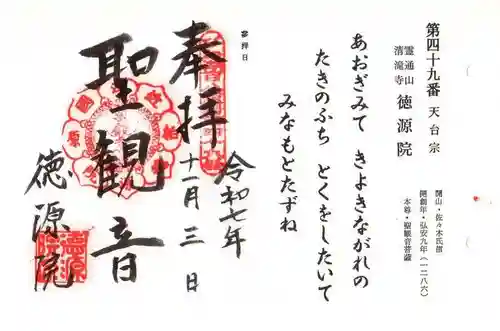 第四十九番 天台宗
霊通山
清滝寺
徳源院
開山・佐々木氏信
開創年・弘安九年(一二八六)
本尊・聖観音菩薩
あおぎみて きよきながれの
たきのふち とくをしたいて
みなもとたずね
参拝日
令和七年
十一月三日
奉拝
聖観音
徳源院